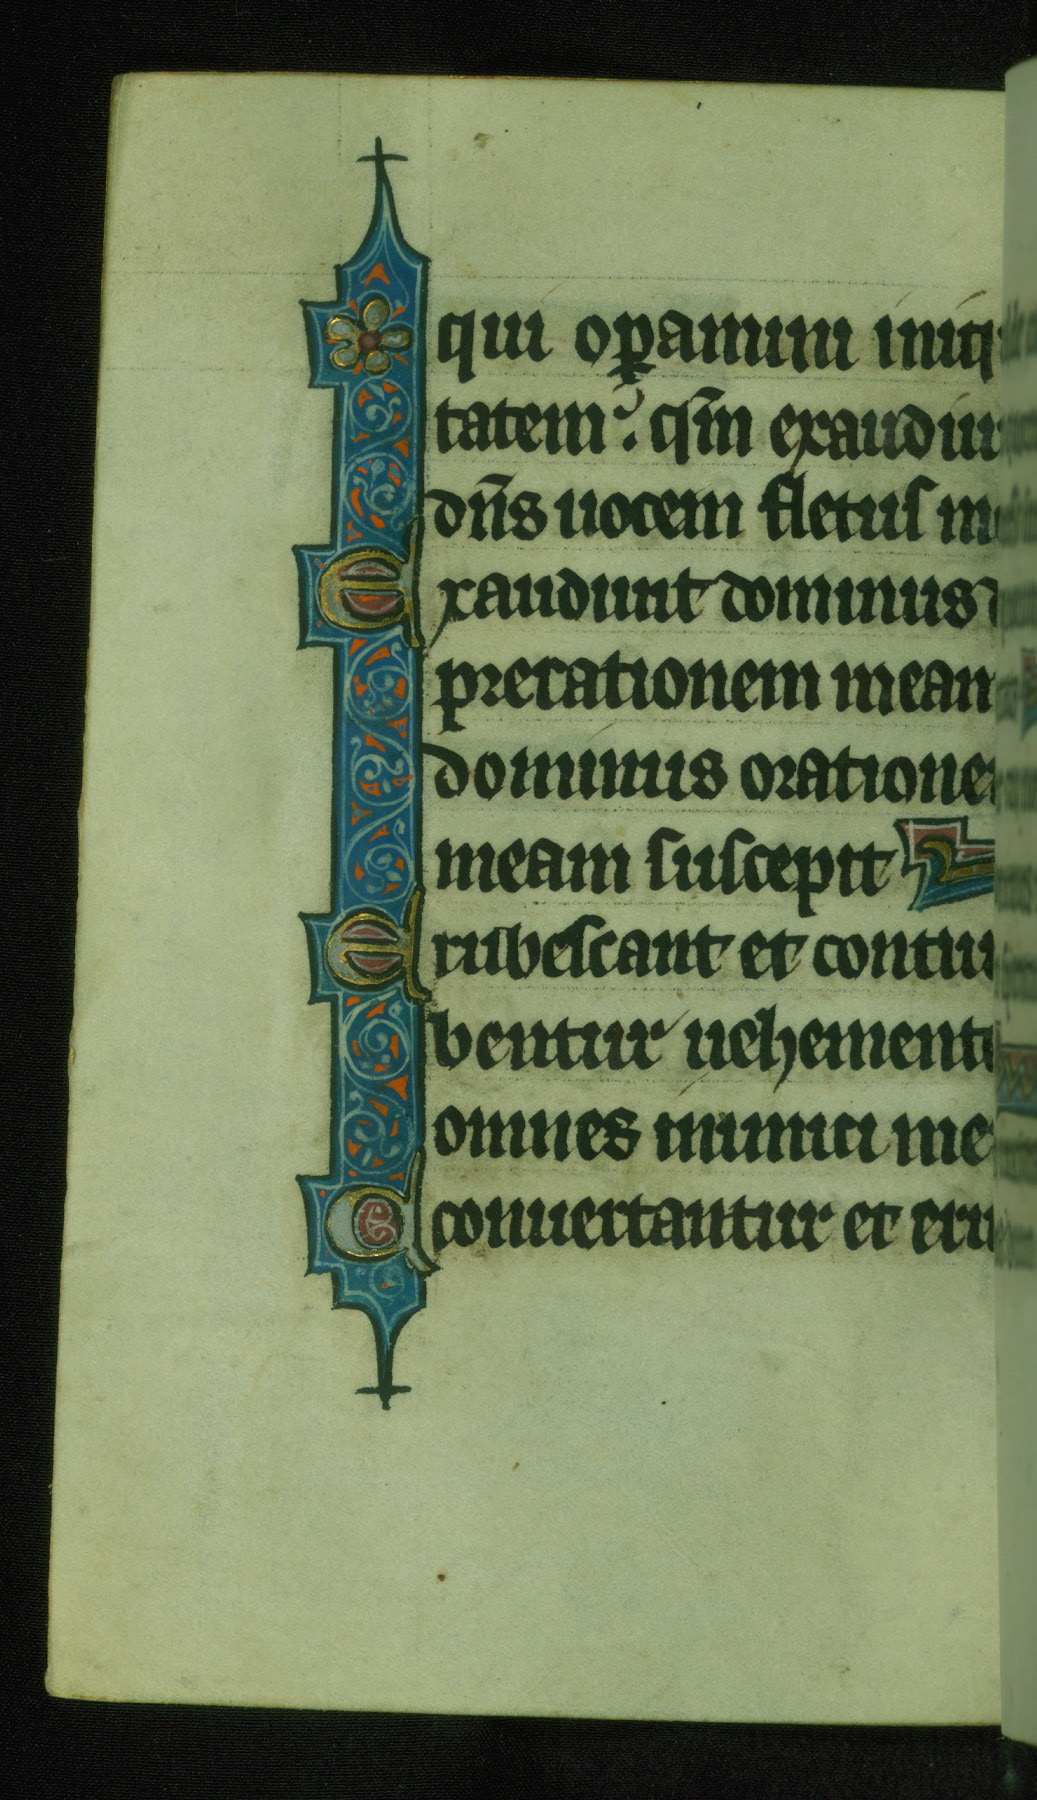 qui op̱amini iniq
tatem. qm̄ exaudiu
dn̄s uocem fletus m
Exaudiuit dominus d
precationem meam
dominus oratione
meam suscepit
Erubescant et contur
bentur uehement
omnes inimici me
Conuertantur et eru